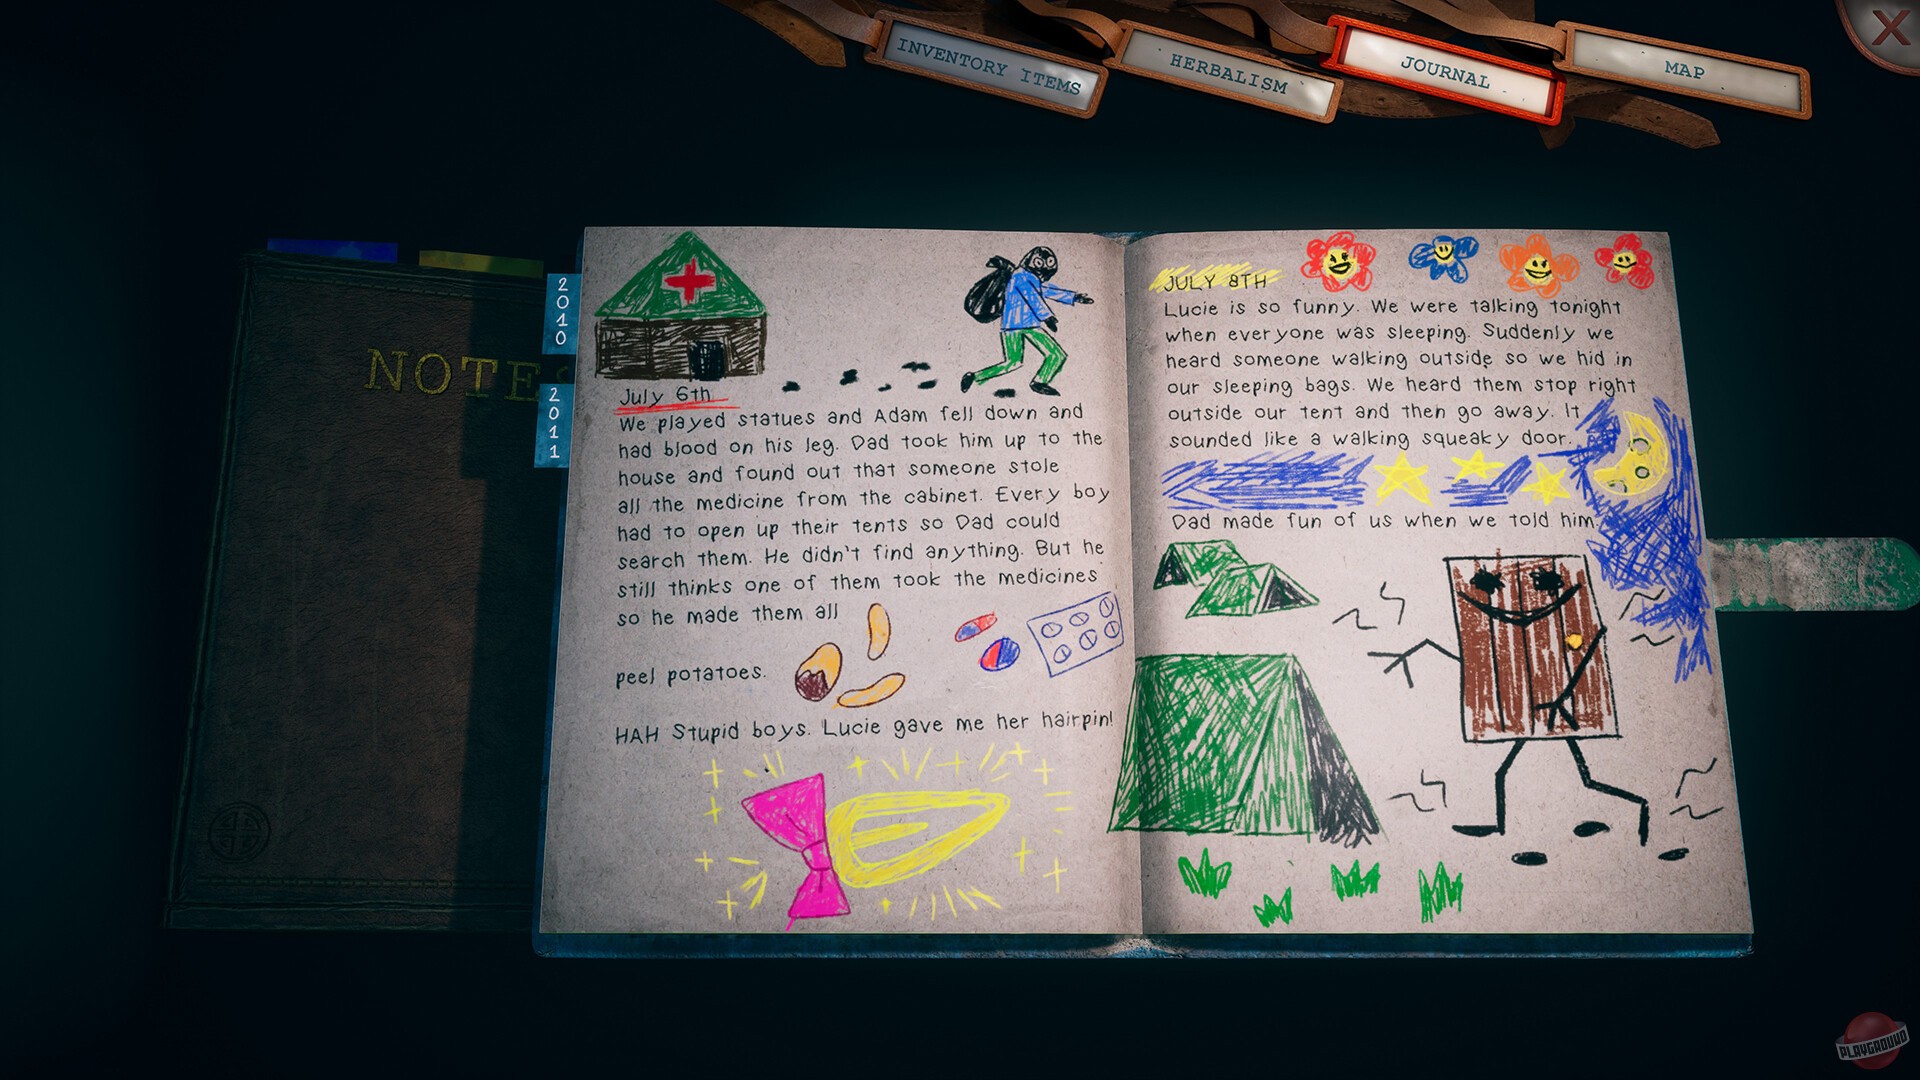 INVENTORY ITEMS
HERBALISM
JOURNAL
MAP
X
NOTES
2010
2011
July 6th
We played statues and Adam fell down and
had blood on his leg. Dad took him up to the
house and found out that someone stole
all the medicine from the cabinet. Every boy
had to open up their tents so Dad could
search them. He didn't find anything. But he
still thinks one of them took the medicines
so he made them all
peel potatoes.
HAH Stupid boys. Lucie gave me her hairpin!
JULY 8TH
Lucie is so funny. We were talking tonight
when everyone was sleeping. Suddenly we
heard someone walking outside so we hid in
our sleeping bags. We heard them stop right
outside our tent and then go away. It
sounded like a walking squeaky door.
Dad made fun of us when we told him.
PLAYGROUND